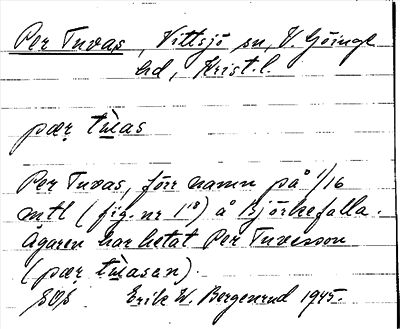 Per Tuvas, Vittsjö sn, V. Göinge
hd, Krist. l.
pær tuas
Per Tuvas, förr namn på 1/16
mtl (fig. nr 1¹⁸) å Björkefalla.
Ägaren har hetat Per Tuvesson
(pær tuasan).
Erik W. Bergenrud 1945.